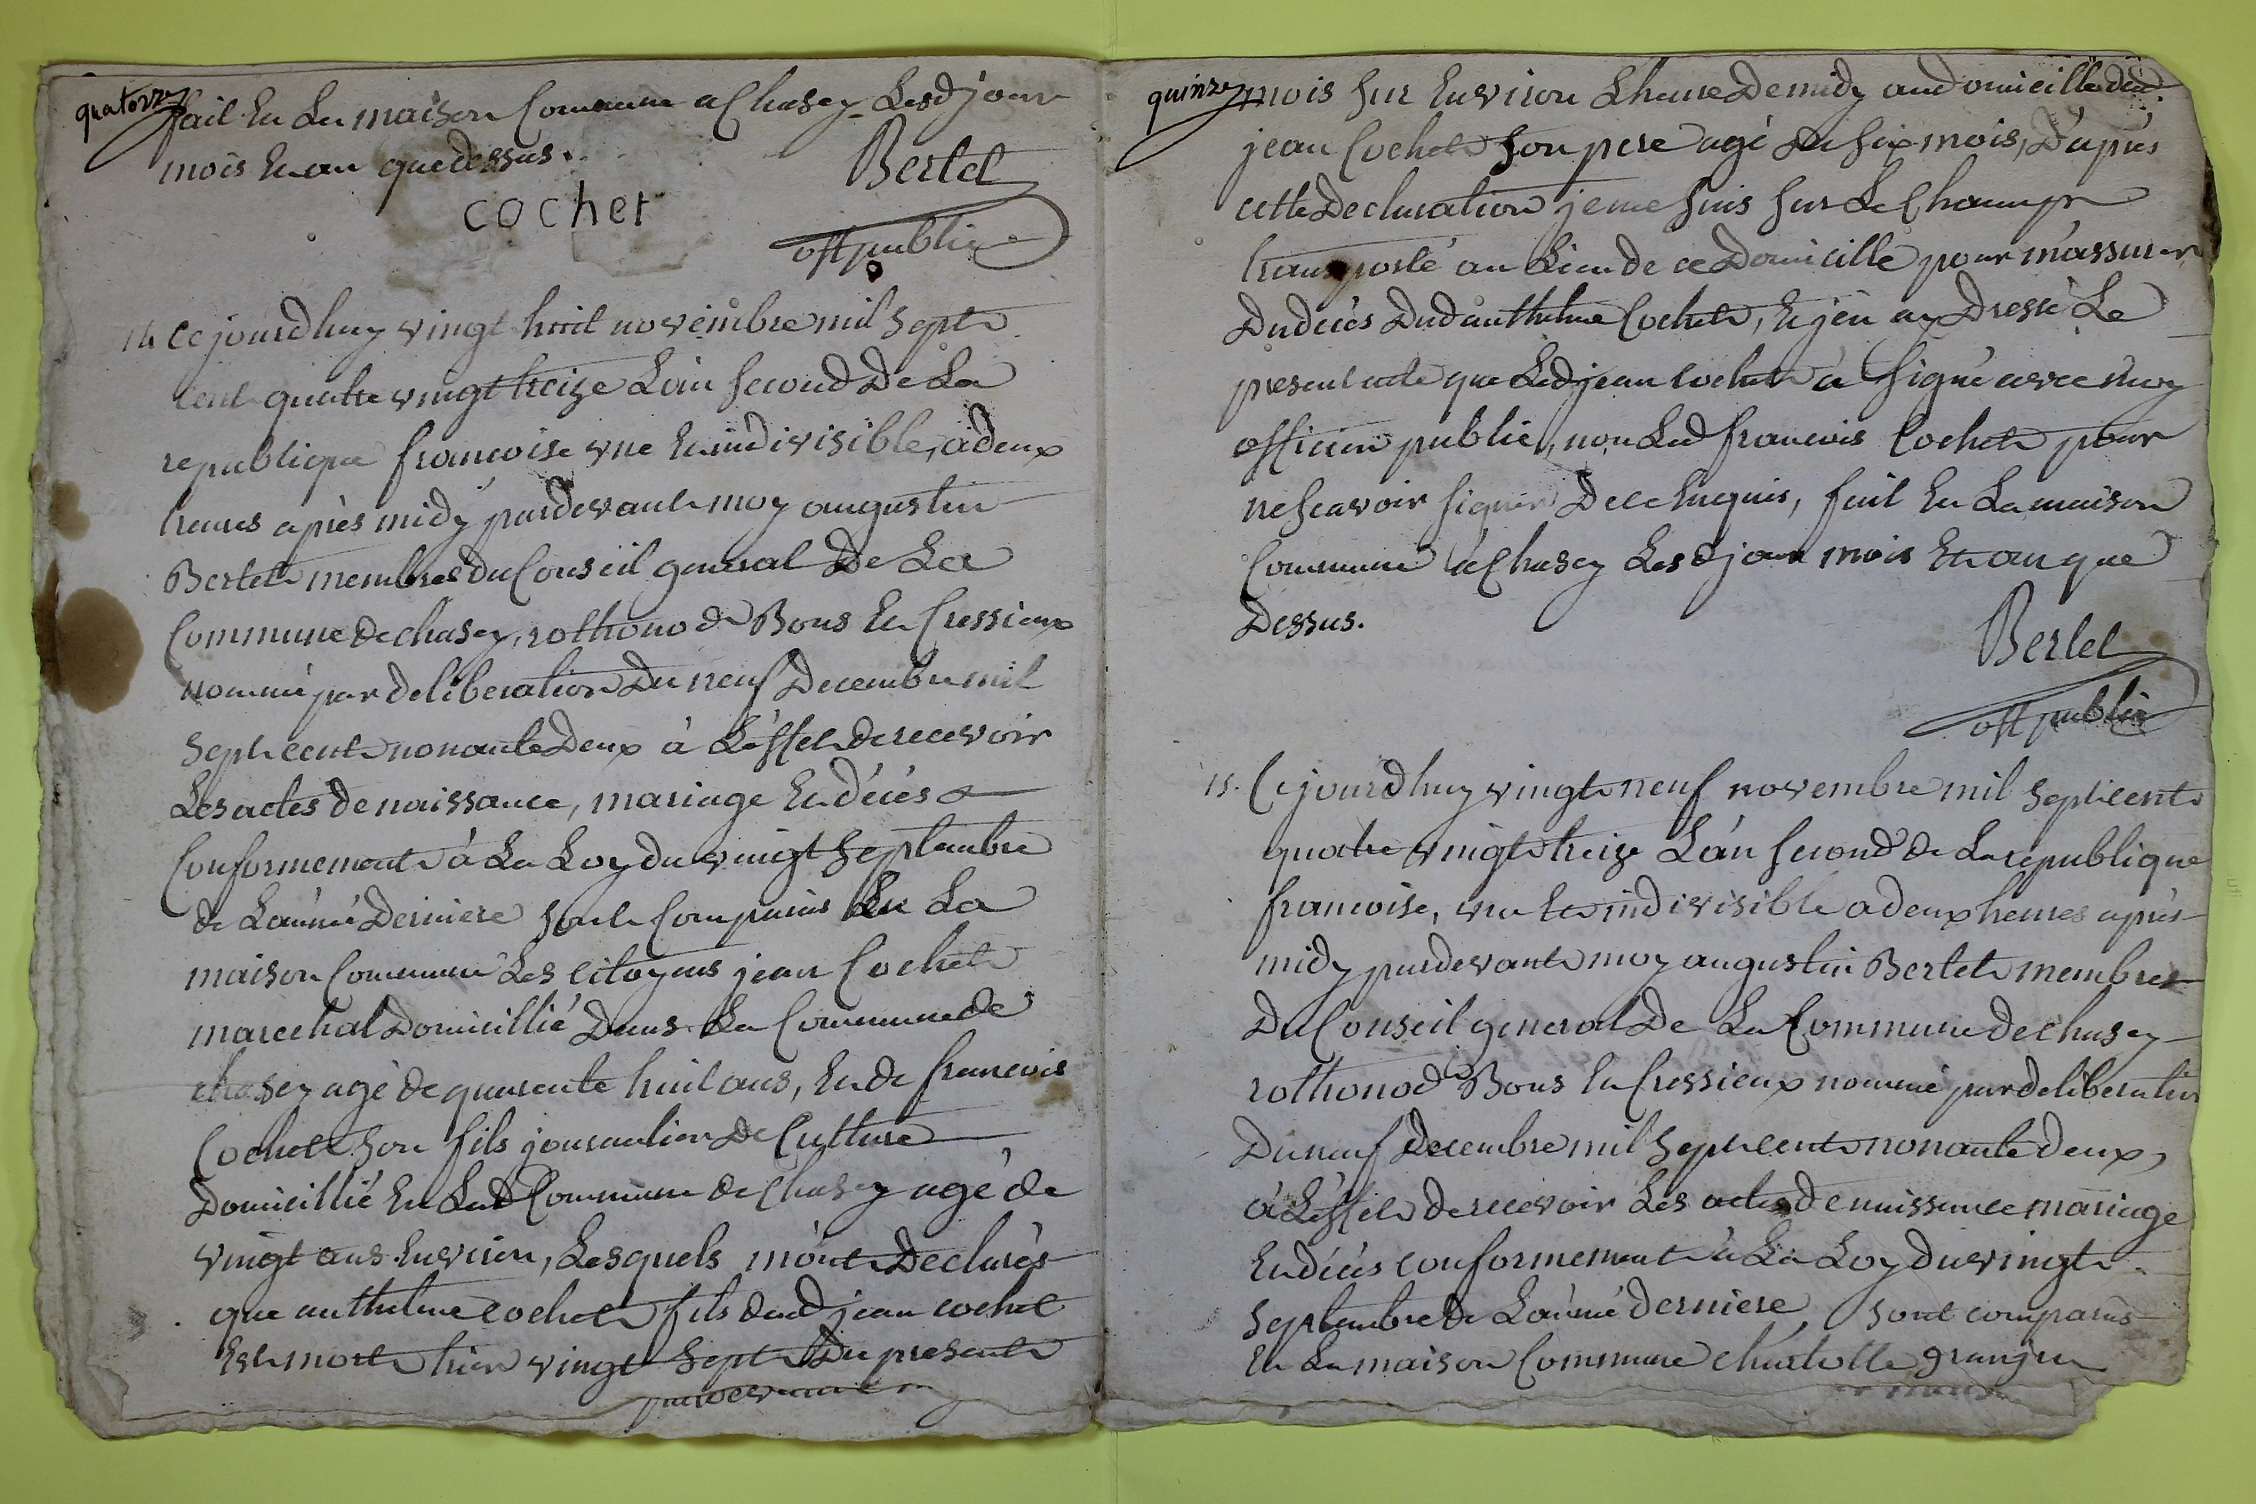 quatorze
fait En La maison Commune a Chasey Lesd jour
mois En an que dessus.
Bertet
cochet
off public
14 Ce jourdhuy vingt huit novembre mil Sept
Cent quatre vingt treize L'an second De La
republique francoise vne En indivisible, a deux
heures après midy pardevant moy augustin
Bertet membres du Conseil general De La
Commune de chasey, rothonod Bons En Cressieux
nommé par deliberation Du neuf Decembre mil
Sept cent nonante Deux à L'effet de recevoir
Les actes de naissance, mariage En décès
Conformement à La Loy du vingt Septembre
de L'année Derniere sont Comparus En La
maison Commune Les Citoyens jean Cochet
marechal Domicillié Dans La Commune de
chasey agé de quarente huit ans, En de francois
Cochet son fils journalier De Culture
Domicillié En Lad Commune de Chasey agé de
vingt ans Environ, Lesquels m'ont Declarés
que anthelme cochet fils dud jean cochet
Est mort hier vingt Sept Du present
quinze
mois sur Environ L'heure De midy au domicille dud
jean Cochet son pere agé de six mois, D'après
cette Declaration je me suis sur Le Champ
transporté au Lieu de ce Domicille pour m'assurer
Du décès Dud anthelme Cochet, En j'en ay Dressé Le
present acte que Led jean cochet a signé avec moy
officier public, non Led francois Cochet pour
ne scavoir signer De ce Enquis, fait En La maison
Commune à Chasey Lesd jour mois Et an que
Dessus.
Bertet
off public
15. Ce jourdhuy vingt neuf novembre mil Sept cent
quatre vingt treize L'an second de La republique
francoise, vne Et indivisible a deux heures après
midy pardevant moy augustin Bertet membres
Du Conseil general De La Commune de chasey
rothonod Bons En Cressieux nommé par deliberation
Du neuf Decembre mil Sept cent nonante deux,
à L'effet de recevoir Les actes de naissance mariage
En décès conformement à La Loy du vingt
Septembre de L'année derniere, sont comparus
En La maison Commune